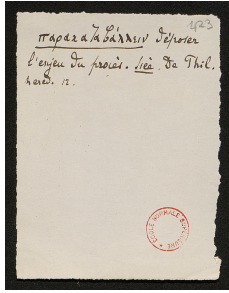 423
παρακαταβάλλειν déposer
l'enjeu du procès. Isée. De Phil.
hered. 12.
ÉCOLE NORMALE SUPÉRIEURE